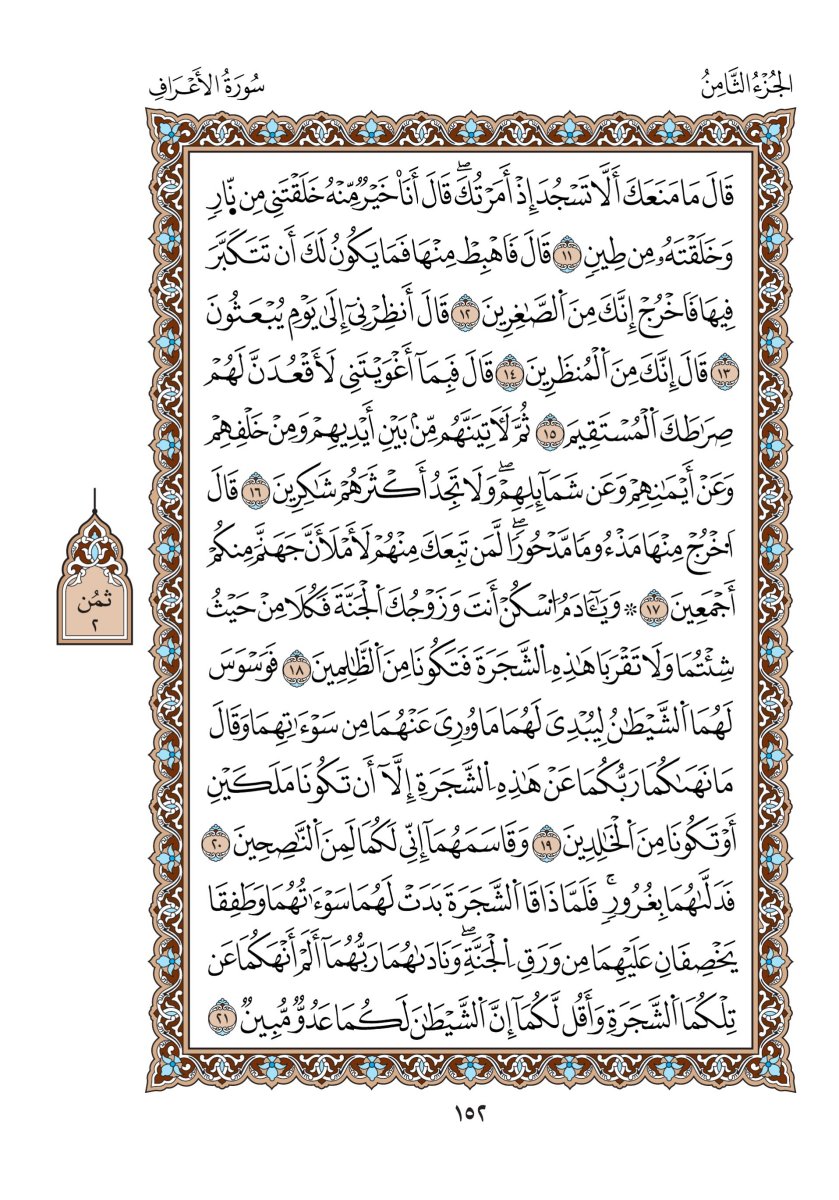 الجُزْءُ الثَّامِنُ
سُورَةُ الأَعْرَافِ
قَالَ مَا مَنَعَكَ أَلَّا تَسْجُدَ إِذْ أَمَرْتُكَۖ قَالَ أَنَا۠ خَيْرٞ مِّنْهُ خَلَقْتَنِي مِن نّ۪ارٖ
وَخَلَقْتَهُۥ مِن طِينٖ ١١ قَالَ فَاهْبِطْ مِنْهَا فَمَا يَكُونُ لَكَ أَن تَتَكَبَّرَ
فِيهَا فَاخْرُجْ إِنَّكَ مِنَ اَلصَّٰغِرِينَ ١٢ قَالَ أَنظِرْنِيٓ إِلَىٰ يَوْمِ يُبْعَثُونَ
١٣ قَالَ إِنَّكَ مِنَ اَلْمُنظَرِينَ ١٤ قَالَ فَبِمَآ أَغْوَيْتَنِي لَأَقْعُدَنَّ لَهُمْ
صِرَٰطَكَ اَلْمُسْتَقِيمَ ١٥ ثُمَّ لَأٓتِيَنَّهُم مِّنۢ بَيْنِ أَيْدِيهِمْ وَمِنْ خَلْفِهِمْ
وَعَنْ أَيْمَٰنِهِمْ وَعَن شَمَآئِلِهِمْۖ وَلَا تَجِدُ أَكْثَرَهُمْ شَٰكِرِينَ ١٦ قَالَ
اَخْرُجْ مِنْهَا مَذْءُومٗا مَّدْحُورٗاۖ لَّمَن تَبِعَكَ مِنْهُمْ لَأَمْلَأَنَّ جَهَنَّمَ مِنكُمْ
أَجْمَعِينَ ١٧ ۞ وَيَٰٓـَٔادَمُ اُسْكُنْ أَنتَ وَزَوْجُكَ اَلْجَنَّةَ فَكُلَا مِنْ حَيْثُ
شِئْتُمَا وَلَا تَقْرَبَا هَٰذِهِ اِلشَّجَرَةَ فَتَكُونَا مِنَ اَلظَّٰلِمِينَ ١٨ فَوَسْوَسَ
لَهُمَا اَلشَّيْطَٰنُ لِيُبْدِيَ لَهُمَا مَا وُۥرِيَ عَنْهُمَا مِن سَوْءَٰتِهِمَا وَقَالَ
مَا نَهَىٰكُمَا رَبُّكُمَا عَنْ هَٰذِهِ اِلشَّجَرَةِ إِلَّآ أَن تَكُونَا مَلَكَيْنِ
أَوْ تَكُونَا مِنَ اَلْخَٰلِدِينَ ١٩ وَقَاسَمَهُمَآ إِنِّي لَكُمَا لَمِنَ اَلنَّٰصِحِينَ ٢٠
فَدَلَّىٰهُمَا بِغُرُورٖۚ فَلَمَّا ذَاقَا اَلشَّجَرَةَ بَدَتْ لَهُمَا سَوْءَٰتُهُمَا وَطَفِقَا
يَخْصِفَانِ عَلَيْهِمَا مِن وَرَقِ اِلْجَنَّةِۖ وَنَادَىٰهُمَا رَبُّهُمَآ أَلَمْ أَنْهَكُمَا عَن
تِلْكُمَا اَلشَّجَرَةِ وَأَقُل لَّكُمَآ إِنَّ اَلشَّيْطَٰنَ لَكُمَا عَدُوّٞ مُّبِينٞ ٢١
ثُمُن
٢
١٥٢